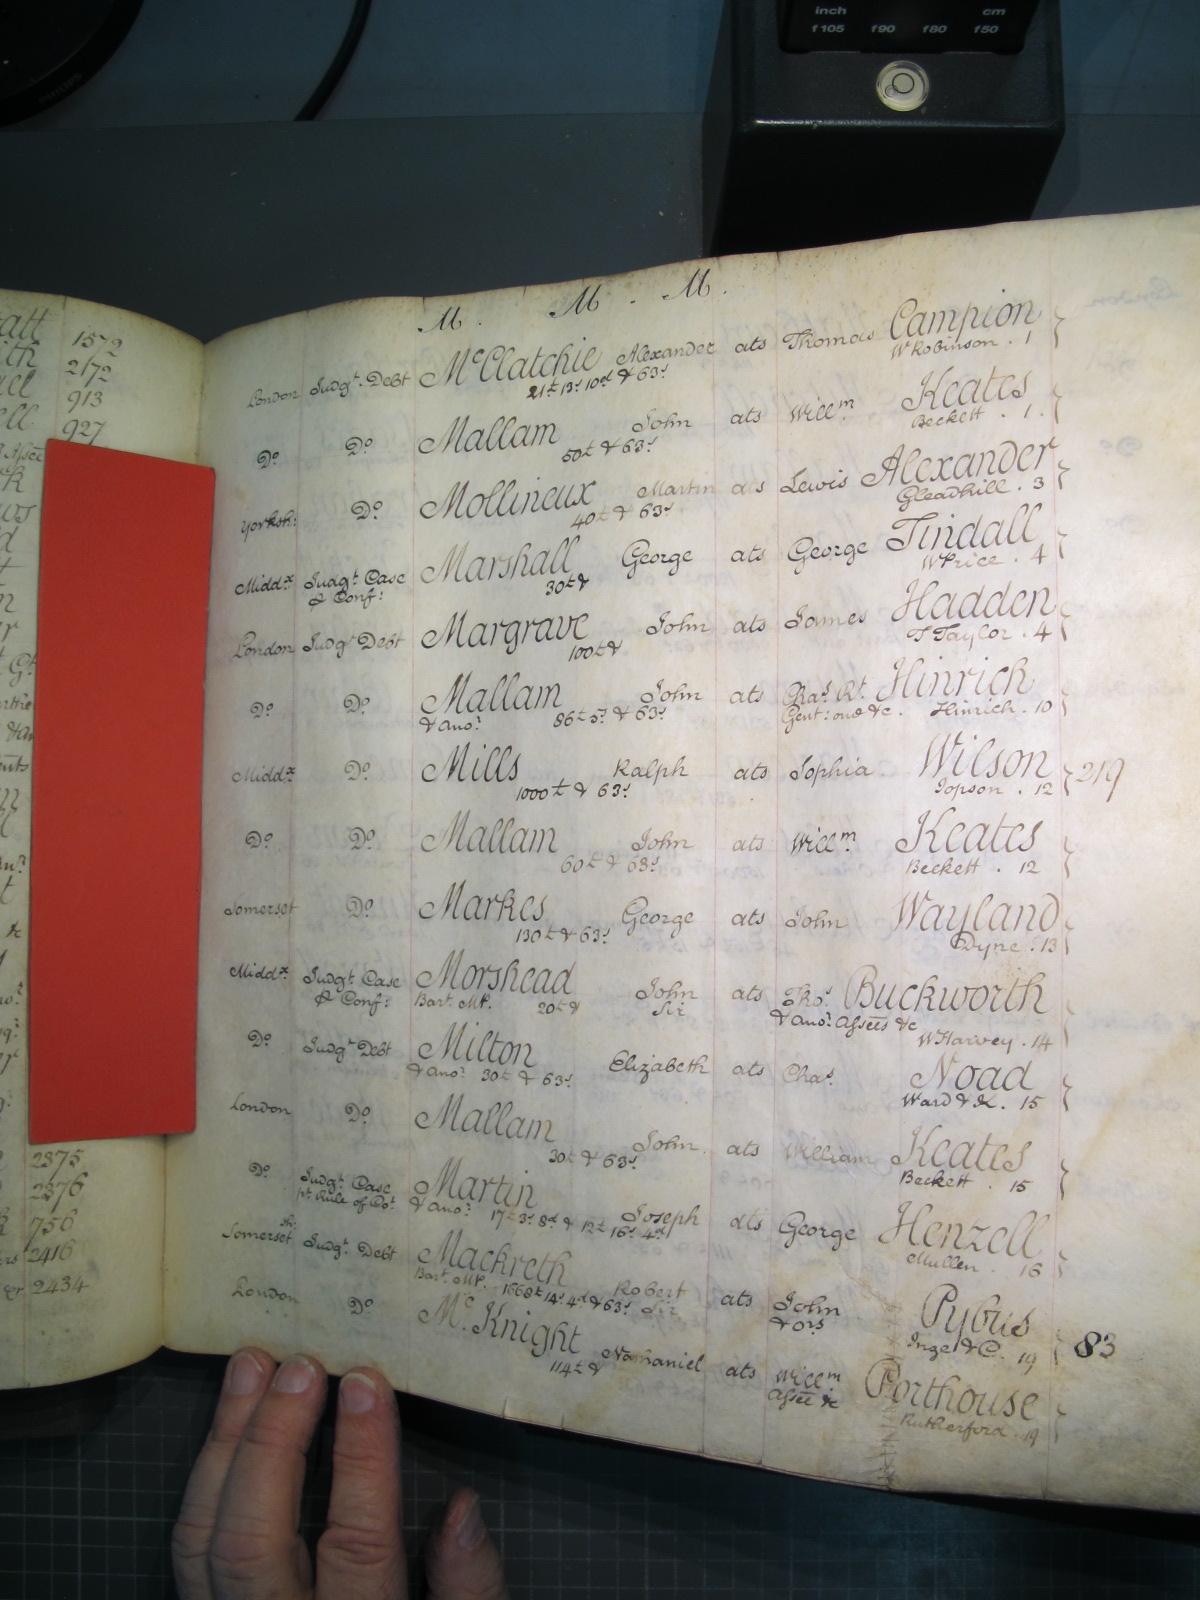 inch cm
f105 f90 f80 f50
PHILIPS
M. M. M.
London Judgt. Debt McClatchie Alexander ats Thomas Campion
21£ 13s 10d & 63s W Robinson . 1
Do Do Mallam John ats Willm Keates
50£ & 63s Beckett . 1.
Yorksh: Do Mollineux Martin ats Lewis Alexander
40£ & 63s Gleadhill . 3
Middx Judgt. Case Marshall George ats George Tindall
& Conf: 30£ & W Price . 4
London Judgt Debt Margrave John ats James Hadden
100£ & T Taylor . 4
Do Do Mallam John ats Chas. Rt. Hinrich
& anor 86£ 5s & 63s Gent: one &c. Hinrich . 10
Middx Do Mills Ralph ats Sophia Wilson 219
1000£ & 63s Jopson . 12
Do Do Mallam John ats Willm Keates
60£ & 63s Beckett . 12
Somerset Do Markes George ats John Wayland
130£ & 63s Dyne . 13
Middx Judgt. Case Morshead John ats Thos. Buckworth
& Conf: Bart. MP. 20£ & Sir & anor. assees &c
W Harvey . 14
Do Judgt Debt Milton Elizabeth ats Chas. Noad
& anor 30£ & 63s Ward & Co. 15
London Do Mallam John ats William Keates
30£ & 63s Beckett . 15
Do Judgt. Case Martin Joseph ats George Henzell
pt. Rule of Cot. & anor 17£ 3s 8d & 12£ 16s 4d Mullen . 16
Somersetsh: Judgt. Debt Mackreth Robert ats John Pybus 83
Bart. MP. 1668£ 14s 4d & 63s Sir & ors Inge & C. 19
London Do McKnight Nathaniel ats Willm Porthouse
114£ & Assee &c Rutherford . 19
1572
2172
913
927
2375
2376
756
2416
2434